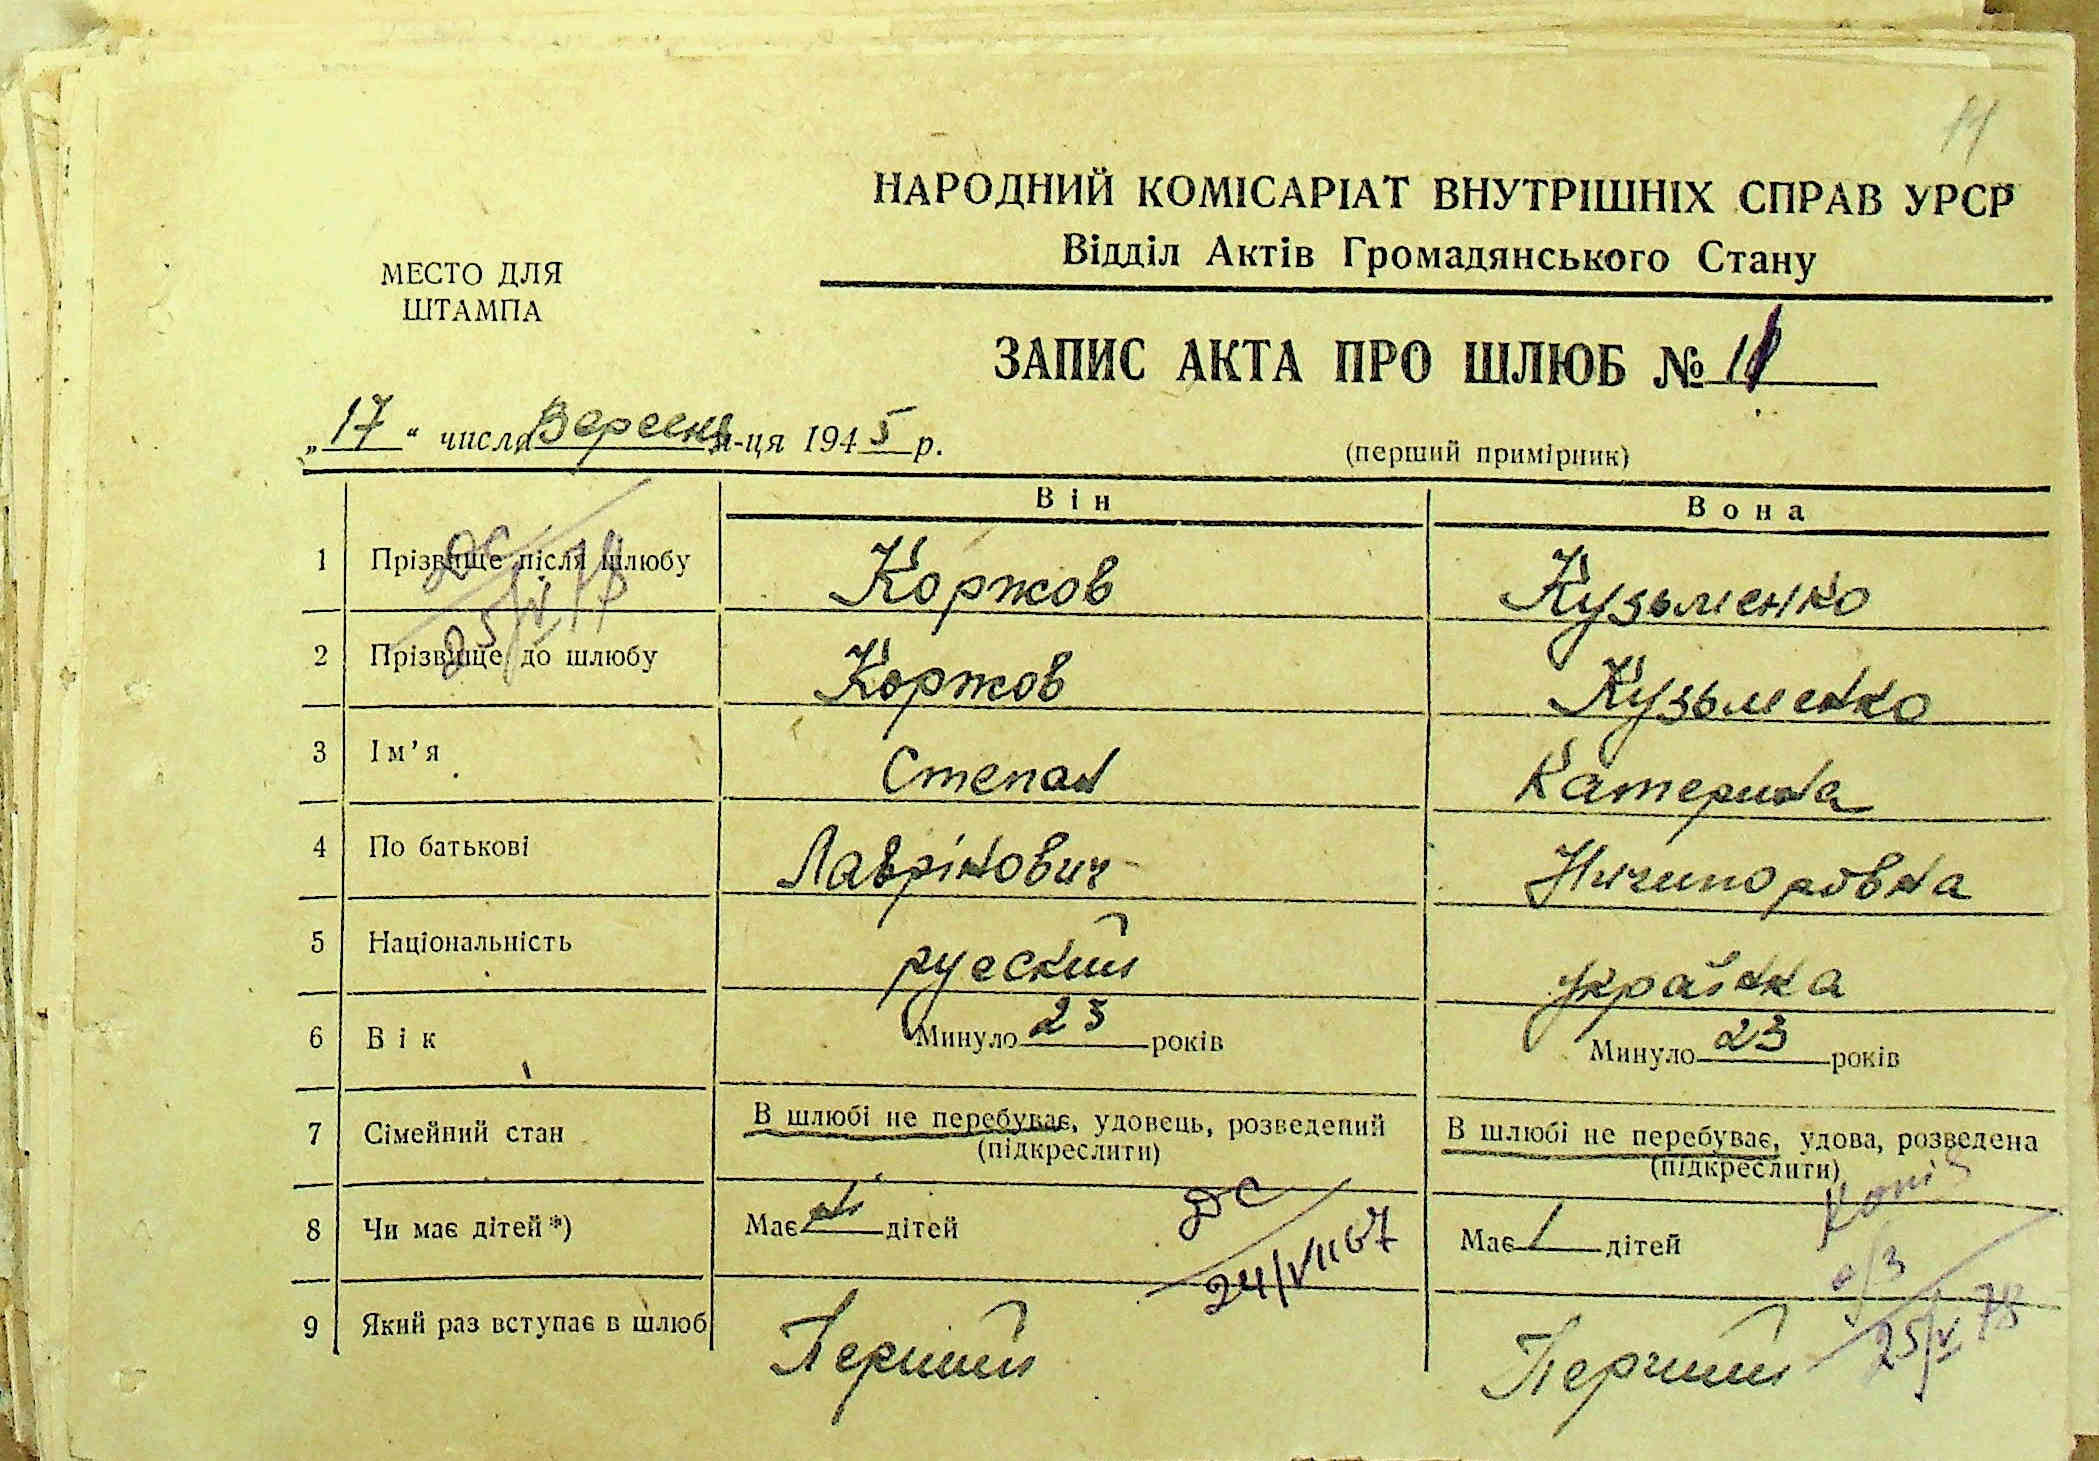 11
НАРОДНИЙ КОМІСАРІАТ ВНУТРІШНІХ СПРАВ УРСР
Відділ Актів Громадянського Стану
МЕСТО ДЛЯ
ШТАМПА
ЗАПИС АКТА ПРО ШЛЮБ № 11
„17“ числа Вересня м-ця 1945 р.
(перший примірник)
Він Вона
1 Прізвище після шлюбу Коржов Кузьменко
2 Прізвище до шлюбу Коржов Кузьменко
3 Ім’я Степан Катерина
4 По батькові Лаврінович Ничипоровна
5 Національність русский українка
6 Вік Минуло 23 років Минуло 23 років
7 Сімейний стан В шлюбі не перебуває, удовець, розведений (підкреслити) В шлюбі не перебуває, удова, розведена (підкреслити)
8 Чи має дітей*) Має ні дітей Має 1 дітей
9 Який раз вступає в шлюб Перший Перчий
ДС
25/V 78
ДС
24/VII 67
копія
о/з
25/V 78